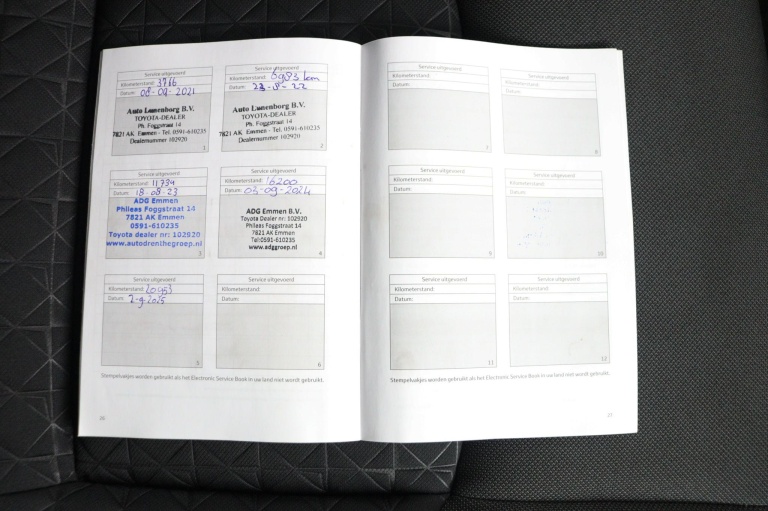 Service uitgevoerd
Kilometerstand: 3766
Datum: 08-09-2021
Auto Lunenborg B.V.
TOYOTA-DEALER
Ph. Foggstraat 14
7821 AK Emmen - Tel. 0591-610235
Dealernummer 102920
1
Service uitgevoerd
Kilometerstand: 6983 km
Datum: 23-8-22
Auto Lunenborg B.V.
TOYOTA-DEALER
Ph. Foggstraat 14
7821 AK Emmen - Tel. 0591-610235
Dealernummer 102920
2
Service uitgevoerd
Kilometerstand: 11739
Datum: 18-08-23
ADG Emmen
Phileas Foggstraat 14
7821 AK Emmen
0591-610235
Toyota dealer nr: 102920
www.autodrenthegroep.nl
3
Service uitgevoerd
Kilometerstand: 16200
Datum: 03-09-2024
ADG Emmen B.V.
Toyota Dealer nr: 102920
Phileas Foggstraat 14
7821 AK Emmen
Tel:0591-610235
www.adggroep.nl
4
Service uitgevoerd
Kilometerstand: 20953
Datum: 2-9-2025
5
Service uitgevoerd
Kilometerstand:
Datum:
6
Stempelvakjes worden gebruikt als het Electronic Service Book in uw land niet wordt gebruikt.
20
Service uitgevoerd
Kilometerstand:
Datum:
7
Service uitgevoerd
Kilometerstand:
Datum:
8
Service uitgevoerd
Kilometerstand:
Datum:
9
Service uitgevoerd
Kilometerstand:
Datum:
10
Service uitgevoerd
Kilometerstand:
Datum:
11
Service uitgevoerd
Kilometerstand:
Datum:
12
Stempelvakjes worden gebruikt als het Electronic Service Book in uw land niet wordt gebruikt.
21